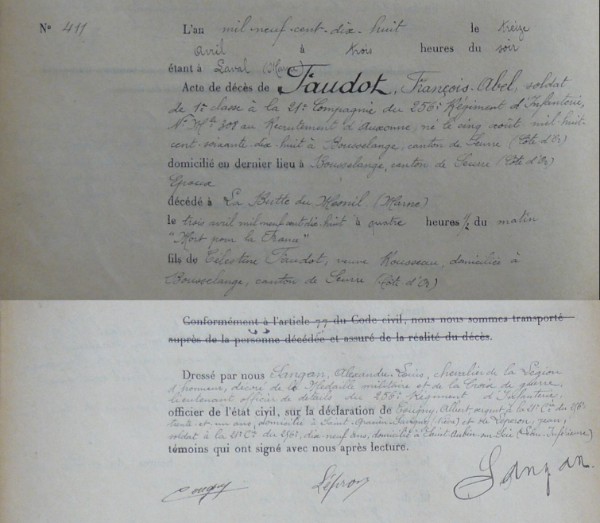 N° 411
L'an mil neuf cent dix huit le treize
avril à trois heures du soir
étant à Laval (Marne)
Acte de décès de Faudot, François-Abel, soldat
de 1e classe à la 21e Compagnie du 256e Régiment d'Infanterie,
N° Mle 301 au Recrutement d'Auxonne; né le cinq août mil huit
cent soixante dix huit à Bousselange, canton de Seurre (Côte d'Or)
domicilié en dernier lieu à Bousselange, canton de Seurre (Côte d'Or)
Epoux
décédé à La Butte du Mesnil (Marne)
le trois avril mil neuf cent dix huit à quatre heures ½ du matin
"Mort pour la France"
fils de Célestine Faudot, veuve Rousseau, domiciliée à
Bousselange, canton de Seurre (Côte d'Or)
Conformément à l'article 77 du Code civil, nous nous sommes transporté
auprès de la personne décédée et assuré de la réalité du décès.
Dressé par nous Sangan, Alexandre Louis, chevalier de la Légion
d'honneur, décoré de la Médaille militaire et de la Croix de guerre,
lieutenant officier de détails du 256e Régiment d'Infanterie
officier de l'état civil, sur la déclaration de Albert sergent à la 21e Cie du 256e
trente et un ans, domicilié à Saint et de
soldat à la 21e Cie du 256e, dix neuf ans, domicilié à Saint Aubin
témoins qui ont signé avec nous après lecture.
Sangan.